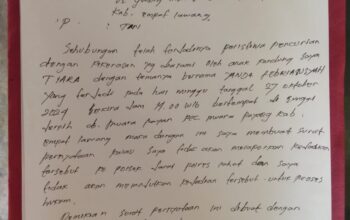 Kab. empat lawang
: TANI
Sehubungan telah terjadinya peristiwa pencurian
dengan kekerasan yg dialami oleh anak kandung saya
TIARA dengan temannya bernama YANDA FEBRIANSYAH
yang terjadi pada hari minggu tanggal 27 oktober
2024 sekira Jam 14.00 WIB bertempat di sungai
Jernih ds. muara pinang kec. muara pinang kab.
empat lawang maka dengan ini saya membuat surat
pernyataan bahwa saya tidak akan melaporkan kejadian
tersebut ke polsek Jarai polres lahat dan saya
tidak akan menuntut kejadian tersebut untuk proses
hukum.
Demikian surat pernyataan ini dibuat dengan